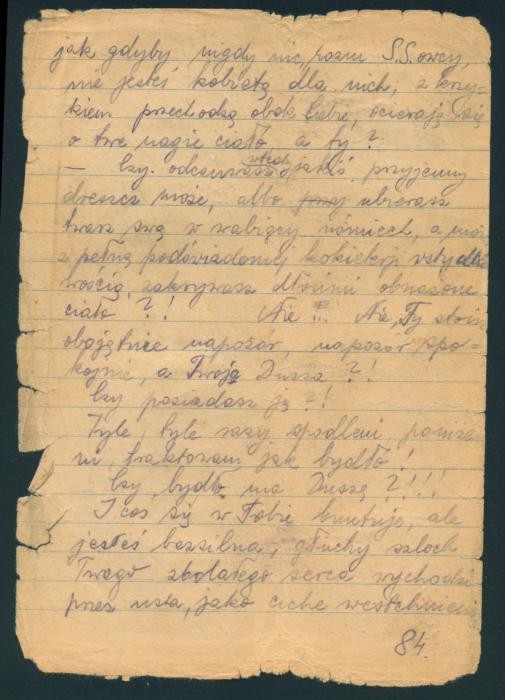 jak gdyby nigdy nic, rośni S.S.owcy,
nie jesteś kobietą dla nich, z krzy-
kiem przechodzą obok Ciebie, ocierają się
o twe nagie ciało a ty?
— Czy odczuwasz wtedy jakiś przyjemny
dreszcz może, albo przy ubierasz
twarz swą w wabiący uśmiech, a może
z pełną podświadomej kokieterji wstydli
wością, zakrywasz dłońmi obnażone
ciało ?! Nie !!! Nie, Ty stoisz
obojętnie napozór, napozór spo-
kojnie, a Twoja Dusza ?!
Czy posiadasz ją ?!
Tyle, tyle razy spodleni, poniże-
ni, traktowani jak bydło!
Czy bydło ma Duszę ?!!!
I coś się w Tobie buntuje, ale
jesteś bezsilna, głuchy szloch
Twego zbolałego serca wychodzi
przez usta, jako ciche westchnienie
84.